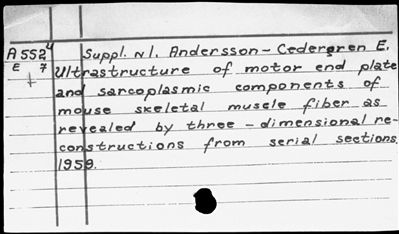 A 552 4 Suppl. N 1. Andersson - Cedergren E.
E 7 Ultrastructure of motor end plate
and sarcoplasmic components of
mouse skeletal muscle fiber as
revealed by three - dimensional re-
constructions from serial sections.
1959.